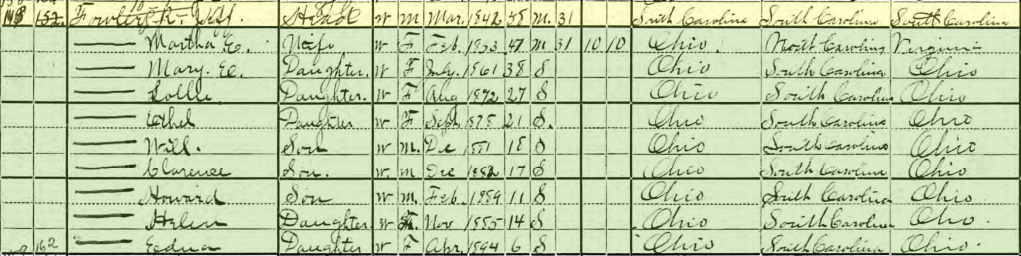 Head W M Mar. 1842 58 M 31 South Carolina South Carolina South Carolina
Martha E. Wife W F Feb. 1853 47 M 31 10 10 Ohio North Carolina Virginia
Mary E. Daughter W F July 1861 38 S Ohio South Carolina Ohio
Daughter W F Aug 1872 27 S Ohio South Carolina Ohio
Ethel Daughter W F Sept 21 S. Ohio South Carolina Ohio
Will. Son W M. De 1881 18 S Ohio South Carolina Ohio
Clarence Son. W M Dec 1882 17 S Ohio South Carolina Ohio
Howard Son W M. Feb. 11 S Ohio South Carolina Ohio
Helen Daughter W F Nov 1885 14 S Ohio South Carolina Ohio.
162 Edna Daughter W F Apr. 1894 6 S Ohio South Carolina Ohio.